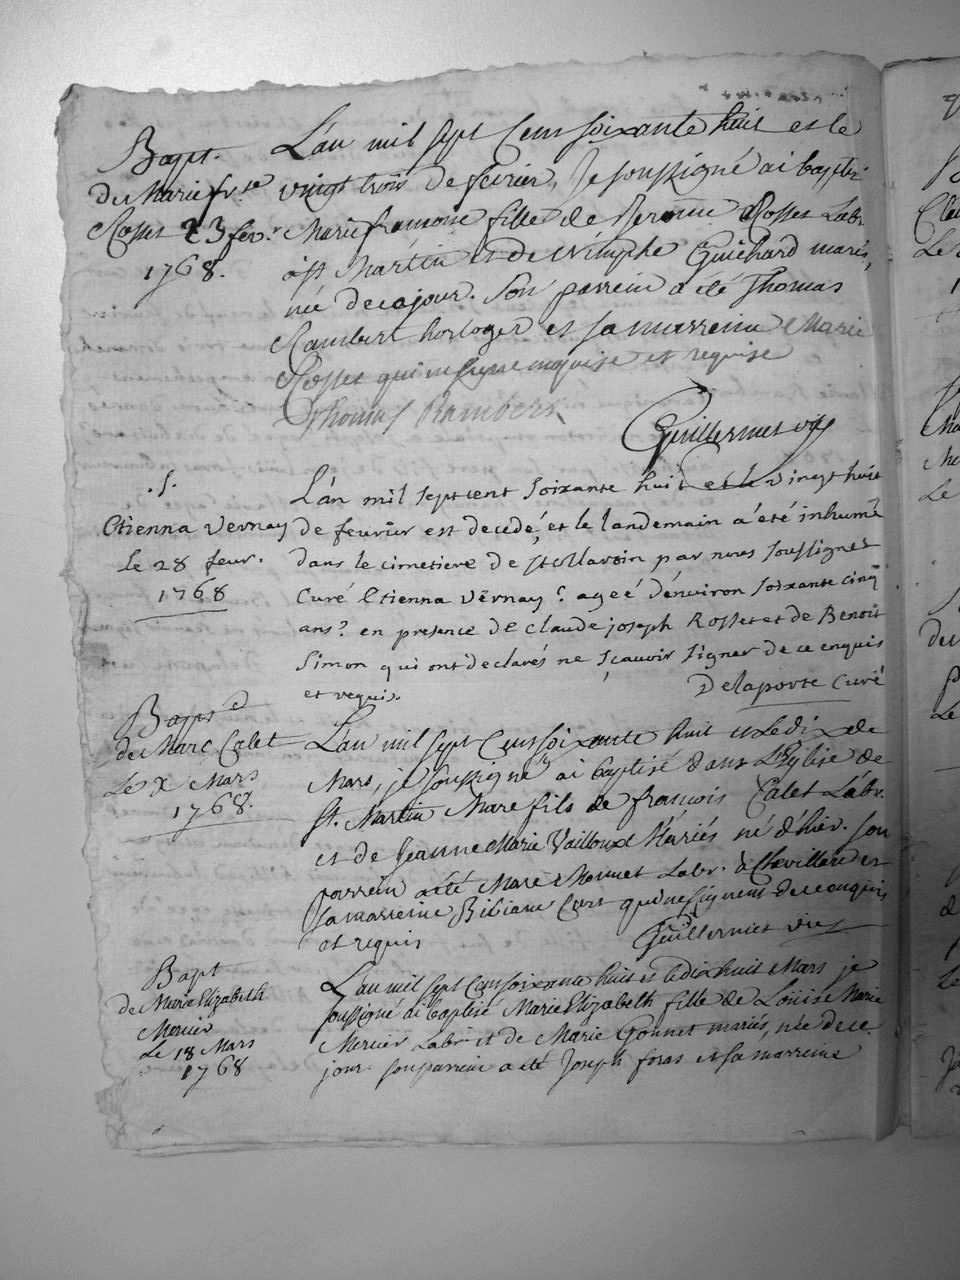 Bapt.
de Marie fr.se
Rosset 23 fev.r
1768.
L'an mil sept Cens soixante huit et le
vingt trois de fevrier, Je soussigné ai baptisé
Marie francoise fille de Jerome Rosset Labr.
à st Martin et de Nimphe Guichard mariés,
née de ce jour. Son parrein a été Thomas
Rambert horloger et sa marreine Marie
Rosset qui ne signe enquise et requise
Thomas Rambert
Guillermet vic
.S.
Etienna Vernay
le 28 feur.
1768
L'an mil sept cent soixante huit et le vingt huit
de feuvrier est decedé, et le landemain a été inhumé
dans le cimetiere de st Martin par nous soussigné
Curé Etienna Vernay agée d'énviron soixante cinq
ans en presence de Claude joseph Rosset et de Benoit
Simon qui ont declarés ne sçauoir signer de ce enquis
et requis.
Delaporte Curé
Bapt
de Marc Calet
Le X Mars
1768.
L'an mil sept Cens soixante huit et le dix de
Mars, je soussigné ai baptisé dans L'Eglise de
St. Martin Marc fils de francois Calet Labr.
et de Jeanne Marie Vailloux Mariés né d'hier. son
parrein a été Marc Monnet Labr. à Chevillard et
sa marreine Bibiane Curt qui ne signent de ce enquis
et requis
Guillermet vic
Bapt
de Marie Elizabeth
Mercier
Le 18 Mars
1768
L'an mil sept Cens soixante huit et le dix huit Mars je
soussigné ai baptisé Marie Elizabeth fille de Louise Marie
Mercier Labr. et de Marie Gonnet mariés, née de ce
jour. son parrein a été Joseph foras et sa marreine